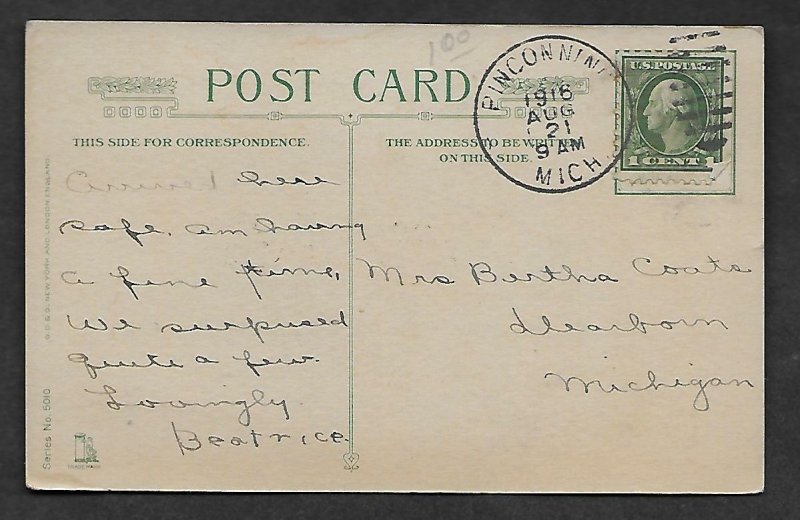 POST CARD
1.00
PINCONNIN
1916
AUG
21
9 AM
MICH
U.S. POSTAGE
1 CENT 1
THIS SIDE FOR CORRESPONDENCE.
THE ADDRESS TO BE WRITTEN
ON THIS SIDE.
Arrived here
safe, am having
a fine time,
We surpused
quite a few.
Lovingly
Beatrice
Mrs Bertha Coats
Dearborn
Michigan
Series No. 5010
G.D.&D. NEW YORK AND LONDON ENGLAND.
TRADE MARK